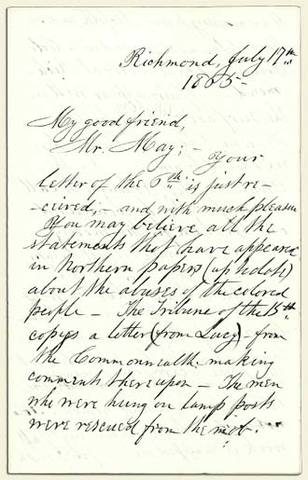 Richmond, July 17th
1865-
My good friend,
Mr. May; - Your
letter of the 6th is just re-
-ceived, - and with much pleasure
You may believe all the
statements that have appeared
in Northern papers (up
about the abuses of the colored
people - The Tribune of the 15th
copies a letter (from Lucy) - from
the Commonwealth making
comments thereupon - The men
who were hung on lamp posts
were rescued from the mob.